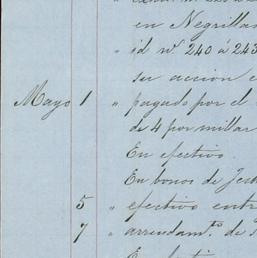 en Negrillas
" id nº 240 á 243
su acción e
Mayo 1 " pagado por el
de 4 por millar
En efectivo
En bonos de
5 " efectivo entr
7 " arrendamtº de